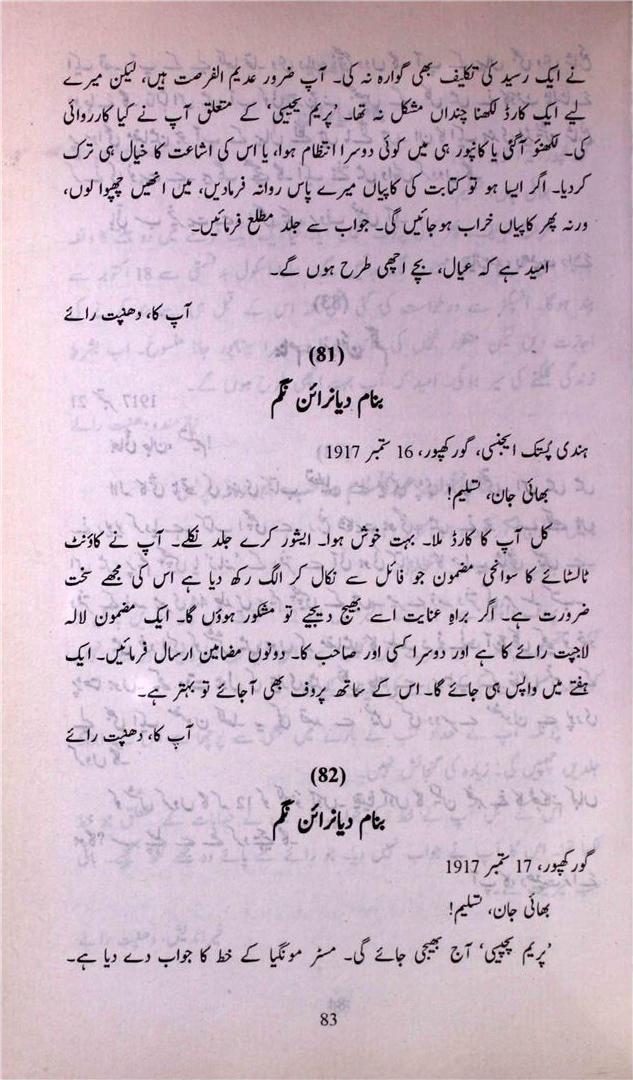 نے ایک رسید کی تکلیف بھی گوارہ نہ کی۔ آپ ضرور عدیم الفرصت ہیں، لیکن میرے
لیے ایک کارڈ لکھنا چنداں مشکل نہ تھا۔ ’پریم پچیسی‘ کے متعلق آپ نے کیا کارروائی
کی۔ لکھنؤ آگئی یا کانپور ہی میں کوئی دوسرا انتظام ہوا، یا اس کی اشاعت کا خیال ہی ترک
کردیا۔ اگر ایسا ہو تو کتابت کی کاپیاں میرے پاس روانہ فرمادیں، میں انھیں چھپوا لوں،
ورنہ پھر کاپیاں خراب ہوجائیں گی۔ جواب سے جلد مطلع فرمائیں۔
امید ہے کہ عیال، بچے اچھی طرح ہوں گے۔
آپ کا، دھنپت رائے
(81)
بنام دیانرائن نگم
ہندی پستک ایجنسی، گورکھپور، 16 ستمبر 1917
بھائی جان، تسلیم!
کل آپ کا کارڈ ملا۔ بہت خوش ہوا۔ ایشور کرے جلد نکلے۔ آپ نے کاؤنٹ
ٹالسٹائے کا سوانحی مضمون جو فائل سے نکال کر الگ رکھ دیا ہے اس کی مجھے سخت
ضرورت ہے۔ اگر براہِ عنایت اسے بھیج دیجیے تو مشکور ہوؤں گا۔ ایک مضمون لالہ
لاجپت رائے کا ہے اور دوسرا کسی اور صاحب کا۔ دونوں مضامین ارسال فرمائیں۔ ایک
ہفتے میں واپس ہی جائے گا۔ اس کے ساتھ پروف بھی آجائے تو بہتر ہے۔
آپ کا، دھنپت رائے
(82)
بنام دیانرائن نگم
گورکھپور، 17 ستمبر 1917
بھائی جان، تسلیم!
’پریم پچیسی‘ آج بھیجی جائے گی۔ مسٹر مونگیا کے خط کا جواب دے دیا ہے۔
83